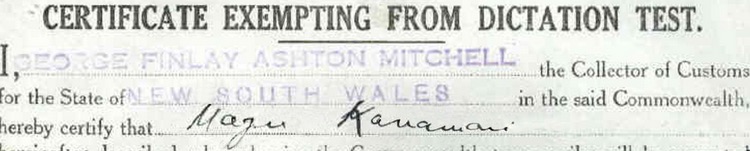 CERTIFICATE EXEMPTING FROM DICTATION TEST.
I, GEORGE FINLAY ASHTON MITCHELL the Collector of Customs
for the State of NEW SOUTH WALES in the said Commonwealth,
hereby certify that Kanamori